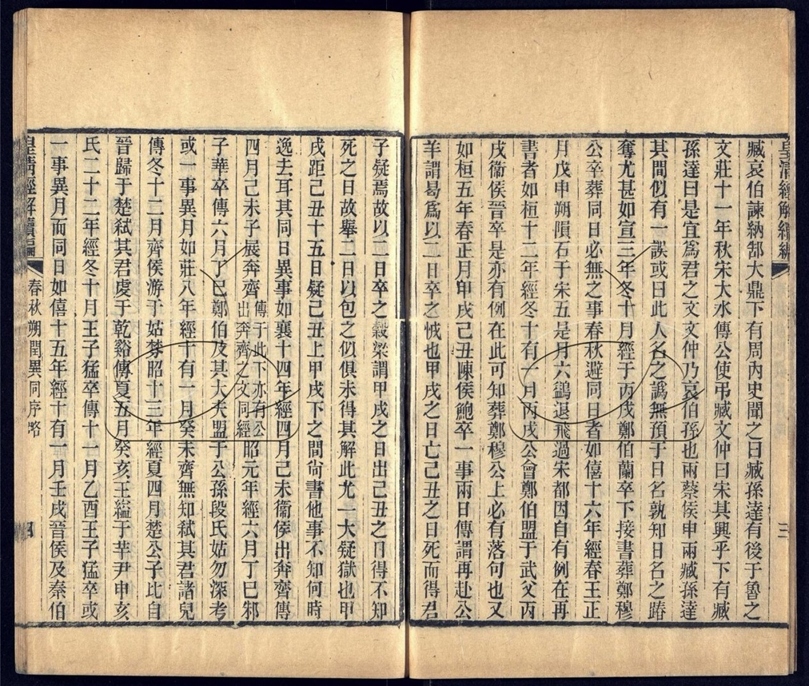 皇清經解續編
三
臧哀伯諫納郜大鼎下有周內史聞之曰臧孫達有後于魯之
文莊十一年秋宋大水傳公使弔臧文仲曰宋其興乎下有臧
孫達曰是宜爲君之文文仲乃哀伯孫也兩蔡侯申兩臧孫達
其間似有一誤或曰此人名之譌無預于日名孰知日名之踳
奪尤甚如宣三年冬十月經于丙戌鄭伯蘭卒下接書葬鄭穆
公卒葬同日必無之事春秋避同日者如僖十六年經春王正
月戊申朔隕石于宋五是月六鷁退飛過宋都因自有例在再
書者如桓十二年經冬十有一月丙戌公會鄭伯盟于武父丙
戌衞侯晉卒是亦有例在此可知葬鄭穆公上必有落句也又
如桓五年春正月甲戌己丑陳侯鮑卒一事兩日傳謂再赴公
羊謂曷爲以二日卒之怴也甲戌之日亡己丑之日死而得君
子疑焉故以二日卒之穀梁謂甲戌之日出己丑之日得不知
死之日故舉二日以包之似俱未得其解此尤一大疑獄也甲
戌距己丑十五日疑己丑上甲戌下之間尙書他事不知何時
逸去耳其同日異事如襄十四年經四月己未衞侯出奔齊傳
四月己未子展奔齊傳于此下亦有公出奔齊之文同經昭元年經六月丁巳邾
子華卒傳六月丁巳鄭伯及其大夫盟于公孫段氏姑勿深考
或一事異月如莊八年經十有一月癸未齊無知弒其君諸兒
傳冬十二月齊侯游于姑棼昭十三年經夏四月楚公子比自
晉歸于楚弒其君虔于乾谿傳夏五月癸亥王縊于芋尹申亥
氏二十二年經冬十月王子猛卒傳十一月乙酉王子猛卒或
一事異月而同日如僖十五年經十有一月壬戌晉侯及秦伯
皇淸經解續編
春秋朔閏異同序略
四